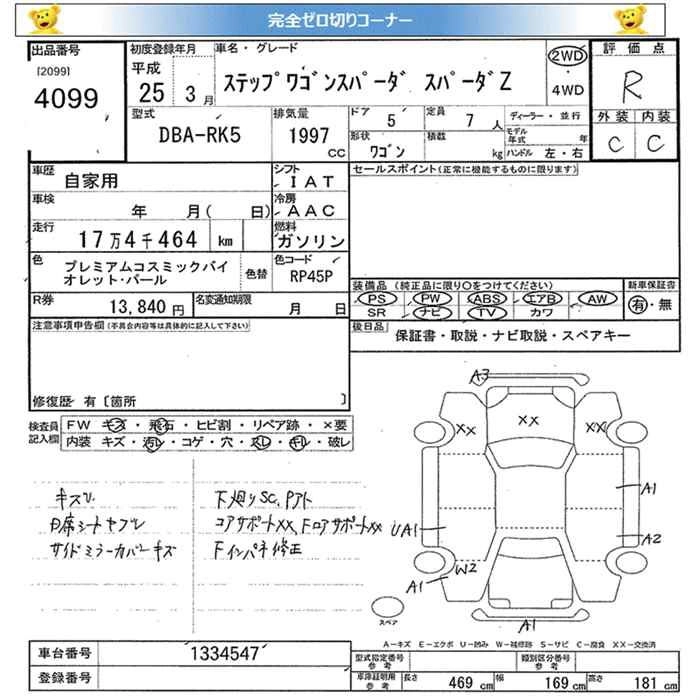 完全ゼロ切りコーナー
出品番号
[2099]
4099
初度登録年月
平成
25 3月
車名・グレード
ステップワゴンスパーダ スパーダZ
2WD
4WD
評価点
R
外装 内装
C C
型式
DBA-RK5
排気量
1997
CC
ドア
5
定員
7人
形状
ワゴン
積数
kg
ディーラー・並行
モデル年式 年
ハンドル 左・右
車歴
自家用
シフト
IAT
車検
年 月( 日)
冷房
AAC
走行
17万4千464 km
燃料
ガソリン
色
プレミアムコスミックバイ
オレット・パール
色替
色コード
RP45P
R券
13,840 円
名変通知期限
月 日
セールスポイント(正常に機能するものに限ります)
装備品 (純正品に限り○をつけてください)
PS PW ABS エアB AW
SR ナビ TV カワ
新車保証書
有・無
後日品
保証書・取説・ナビ取説・スペアキー
注意事項申告欄(不具合内容等は具体的に記入して下さい)
修復歴 有〔箇所 〕
検査員
記入欄
FW キズ・飛石・ヒビ割・リペア跡・×要
内装 キズ・汚レ・コゲ・穴・スレ・キレ・破レ
キズU
D席シートヤブレ
サイドミラーカバーキズ
下廻りSC、Pアト
コアサポートXX、Fロアサポートxx
Fインパネ修正
A3
XX
XX
XX
A1
UA1
A2
W2
A1
A1
スペア
A－キズ E－エクボ U－凹み W－補修跡 S－サビ C－腐食 XX－交換済
車台番号
1334547
登録番号
型式指定番号
参考
類別区分番号
参考
車庫証明用
参考
長さ 469 cm
幅 169 cm
高さ 181 cm